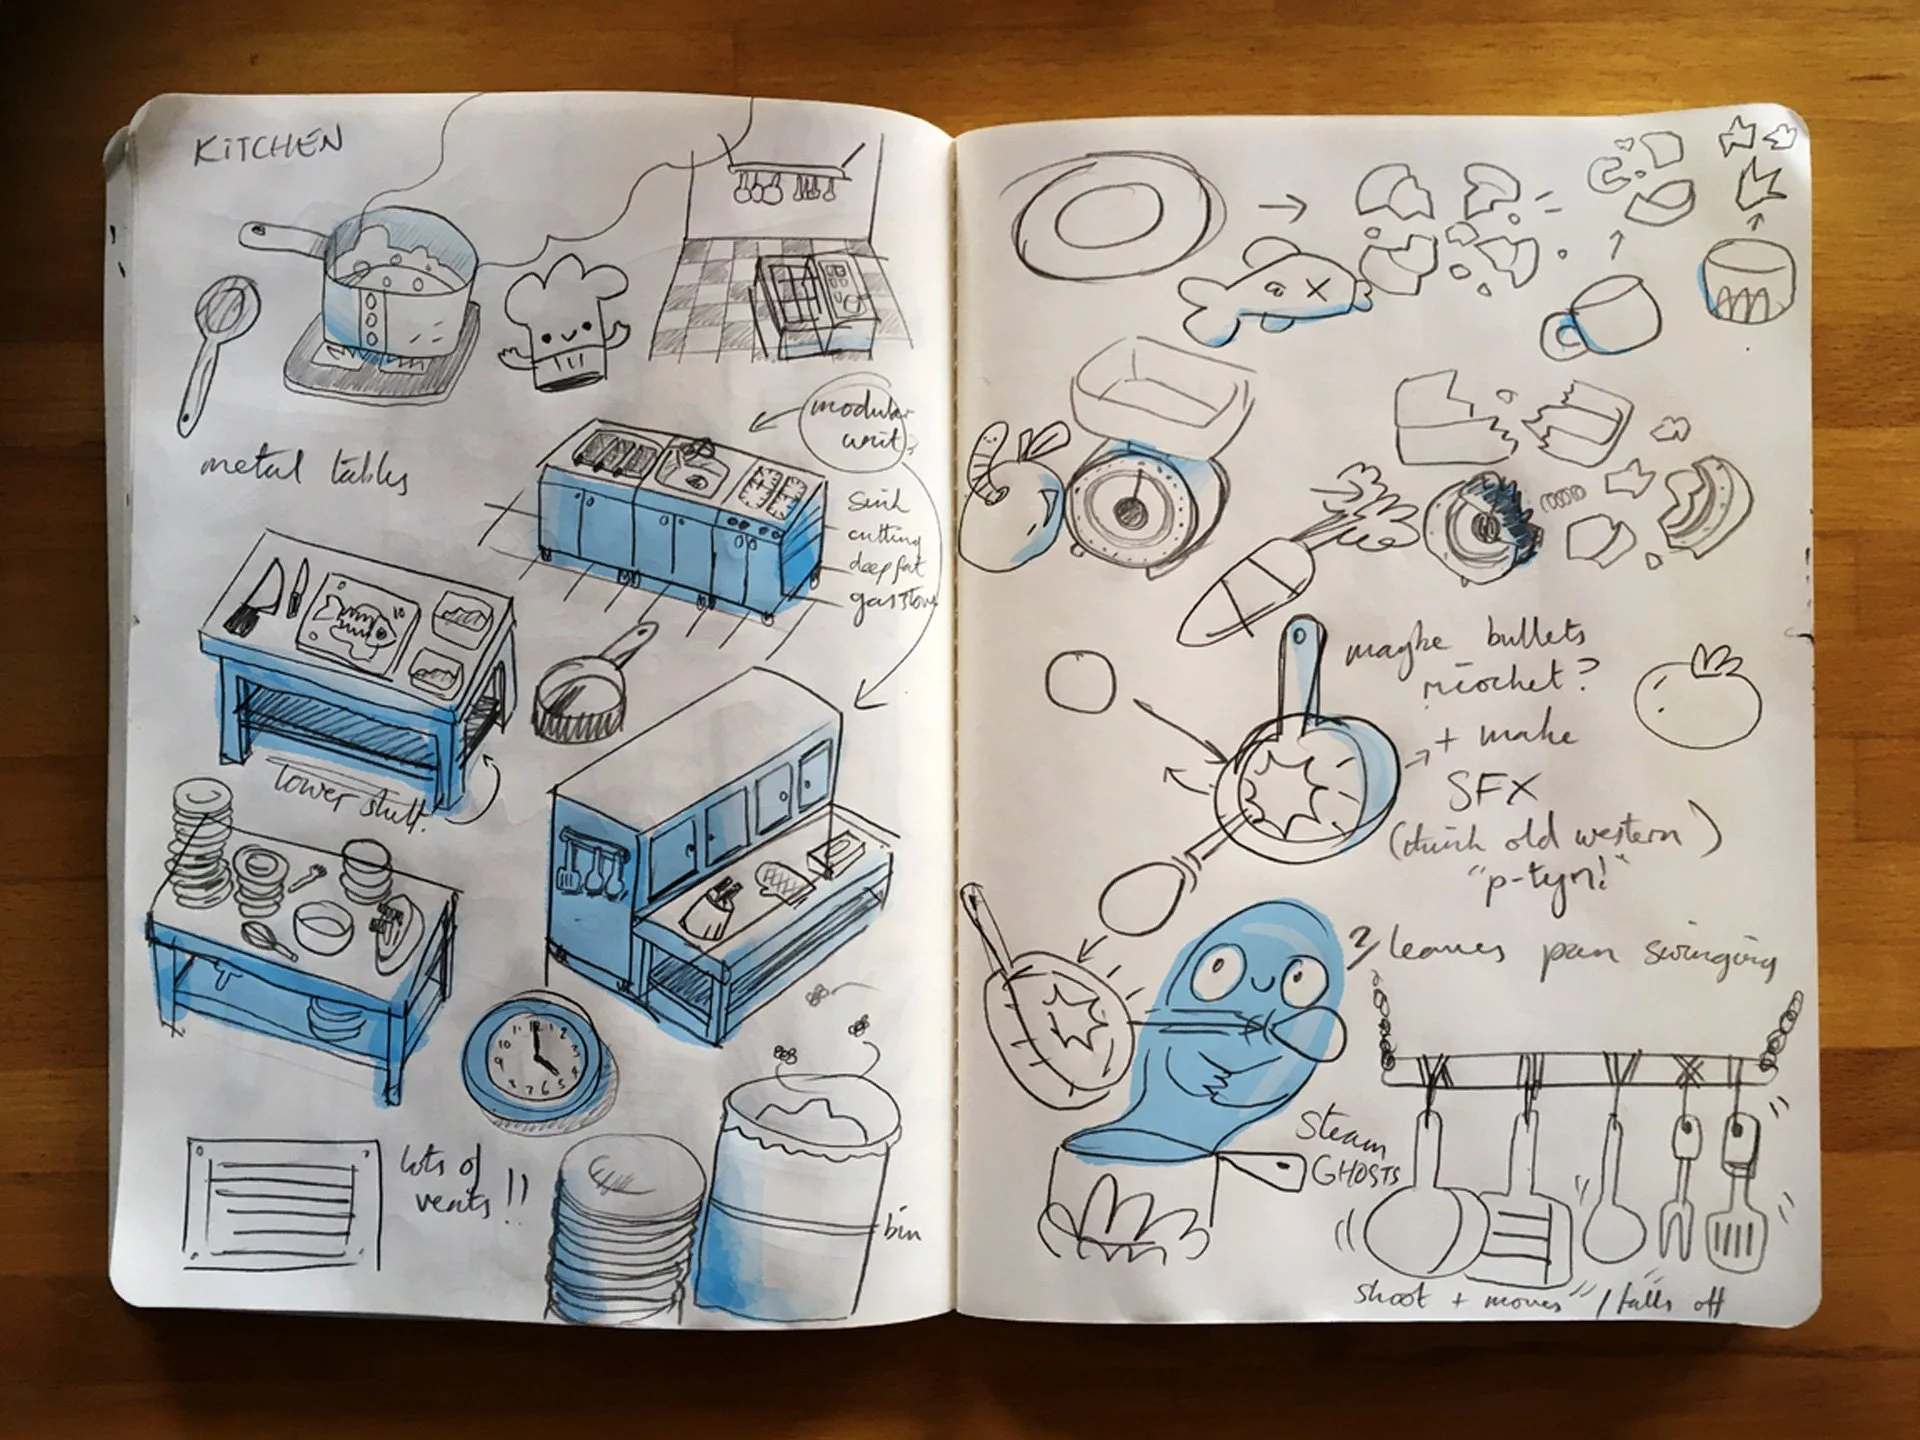 KITCHEN
metal tables
modular
unit?
Sink
cutting
deep fat
gas stove
lower shelf!
lots of
vents!!
bin
maybe bullets
ricochet?
+ make
SFX
(think old western)
"p-tyn!"
leaves pan swinging
Steam
GHOSTS
shoot + moves / falls off